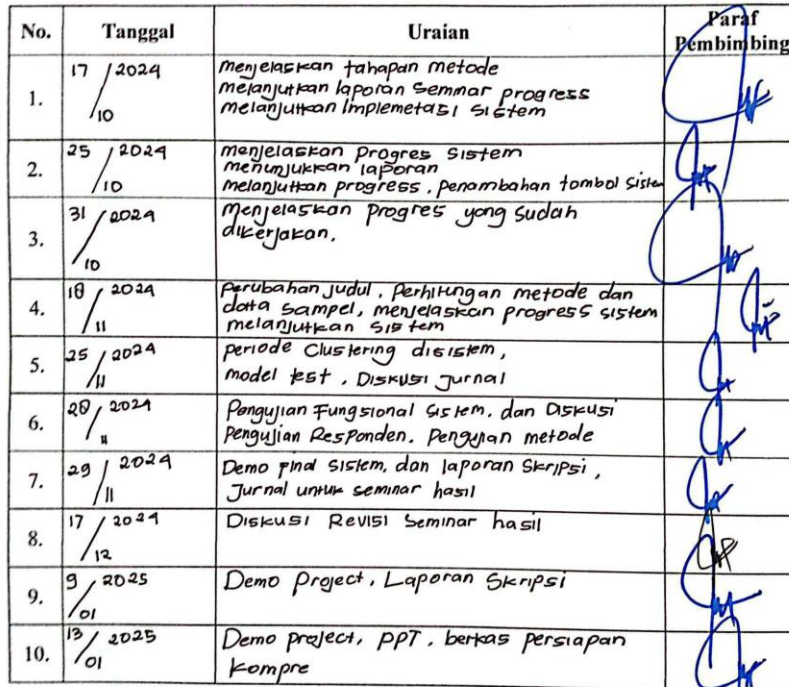 No. Tanggal Uraian Paraf Pembimbing
1. 17/10 2024 menjelaskan tahapan metode
melanjutkan laporan Seminar progress
melanjutkan Implemetasi sistem
2. 25/10 2024 menjelaskan progres sistem
menunjukkan laporan
melanjutkan progress, penambahan tombol sistem
3. 31/10 2024 Menjelaskan progres yang sudah
dikerjakan.
4. 18/11 2024 perubahan judul, perhitungan metode dan
data sampel, menjelaskan progress sistem
melanjutkan sistem
5. 25/11 2024 periode Clustering disistem,
model test, Diskusi Jurnal
6. 28/11 2024 Pengujian Fungsional sistem, dan Diskusi
Pengujian Responden, Pengujian metode
7. 29/11 2024 Demo final sistem, dan laporan Skripsi,
Jurnal untuk seminar hasil
8. 17/12 2024 Diskusi Revisi Seminar hasil
9. 9/01 2025 Demo Project, Laporan Skripsi
10. 13/01 2025 Demo project, PPT, berkas persiapan
kompre